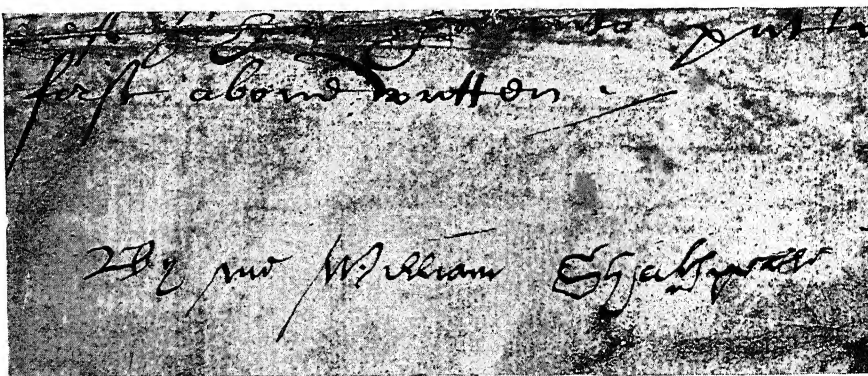 put
first aboue written .
By me William Shakspeare